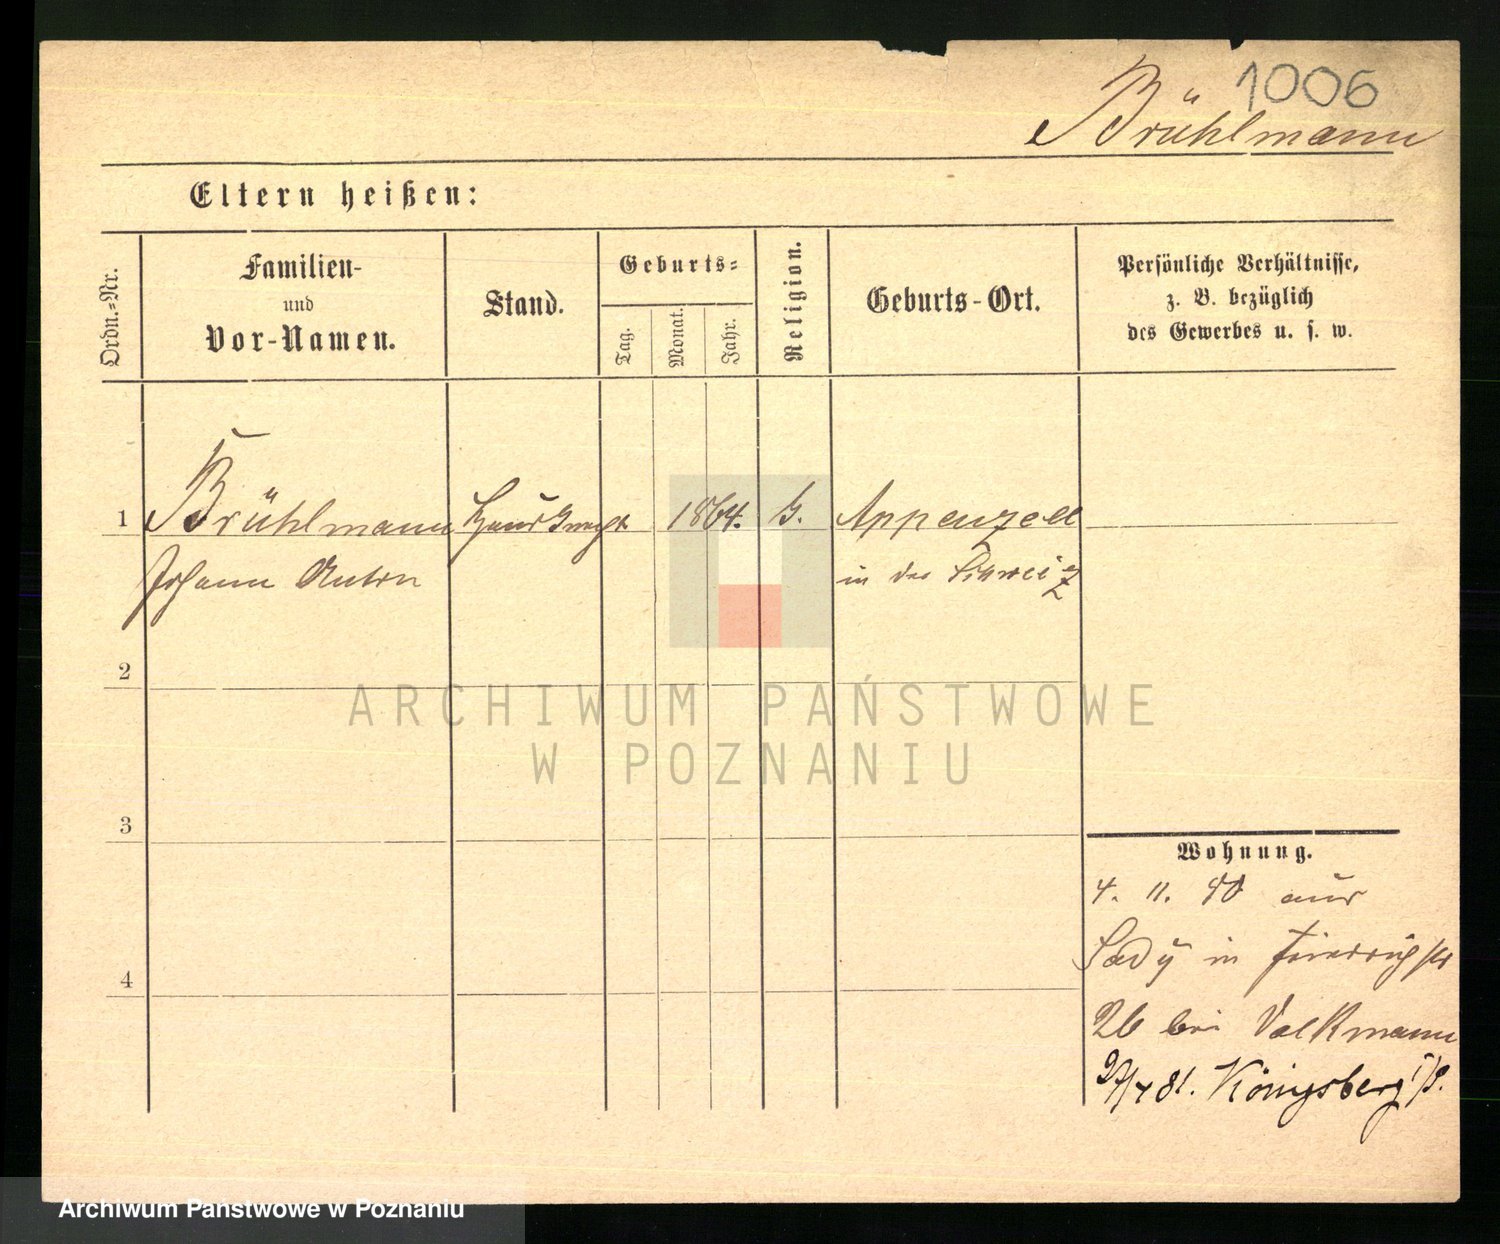 1006
Brühlmann
Eltern heißen:
Ordn.-Nr.
Familien-
und
Vor-Namen.
Stand.
Geburts-
Tag.
Monat.
Jahr.
Religion.
Geburts-Ort.
Persönliche Verhältnisse,
z. B. bezüglich
des Gewerbes u. s. w.
1 Brühlmann Hausknecht 1864. Appenzell
Johann Anton in der Schweiz
2
3
4
ARCHIWUM PAŃSTWOWE
W POZNANIU
Wohnung.
4. 11. 80 aus
in Friedrichstr
26 bei Volkmann
81. Königsberg i/P.
Archiwum Państwowe w Poznaniu